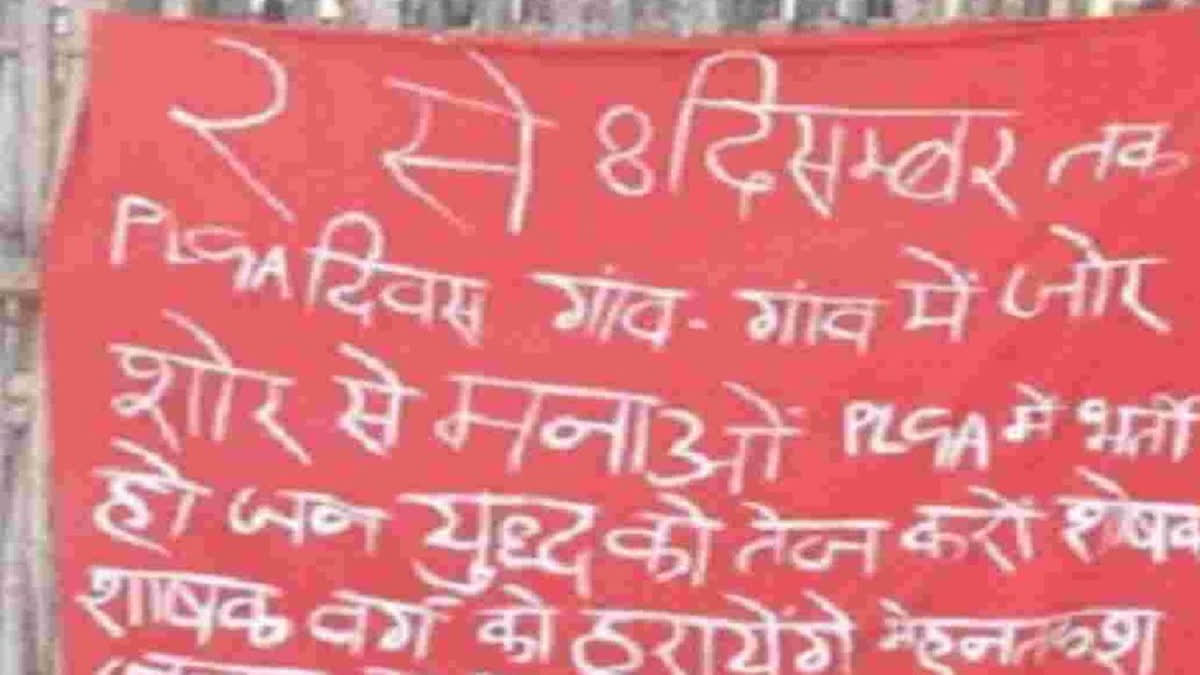 २ से 8 दिसम्बर तक
PLGA दिवस गांव - गांव में जोर
शोर से मनाओं PLGA में भर्ती
हो जन युद्ध को तेज करों शोषक
शाषक वर्ग को हरायेंगे मेहनतकश